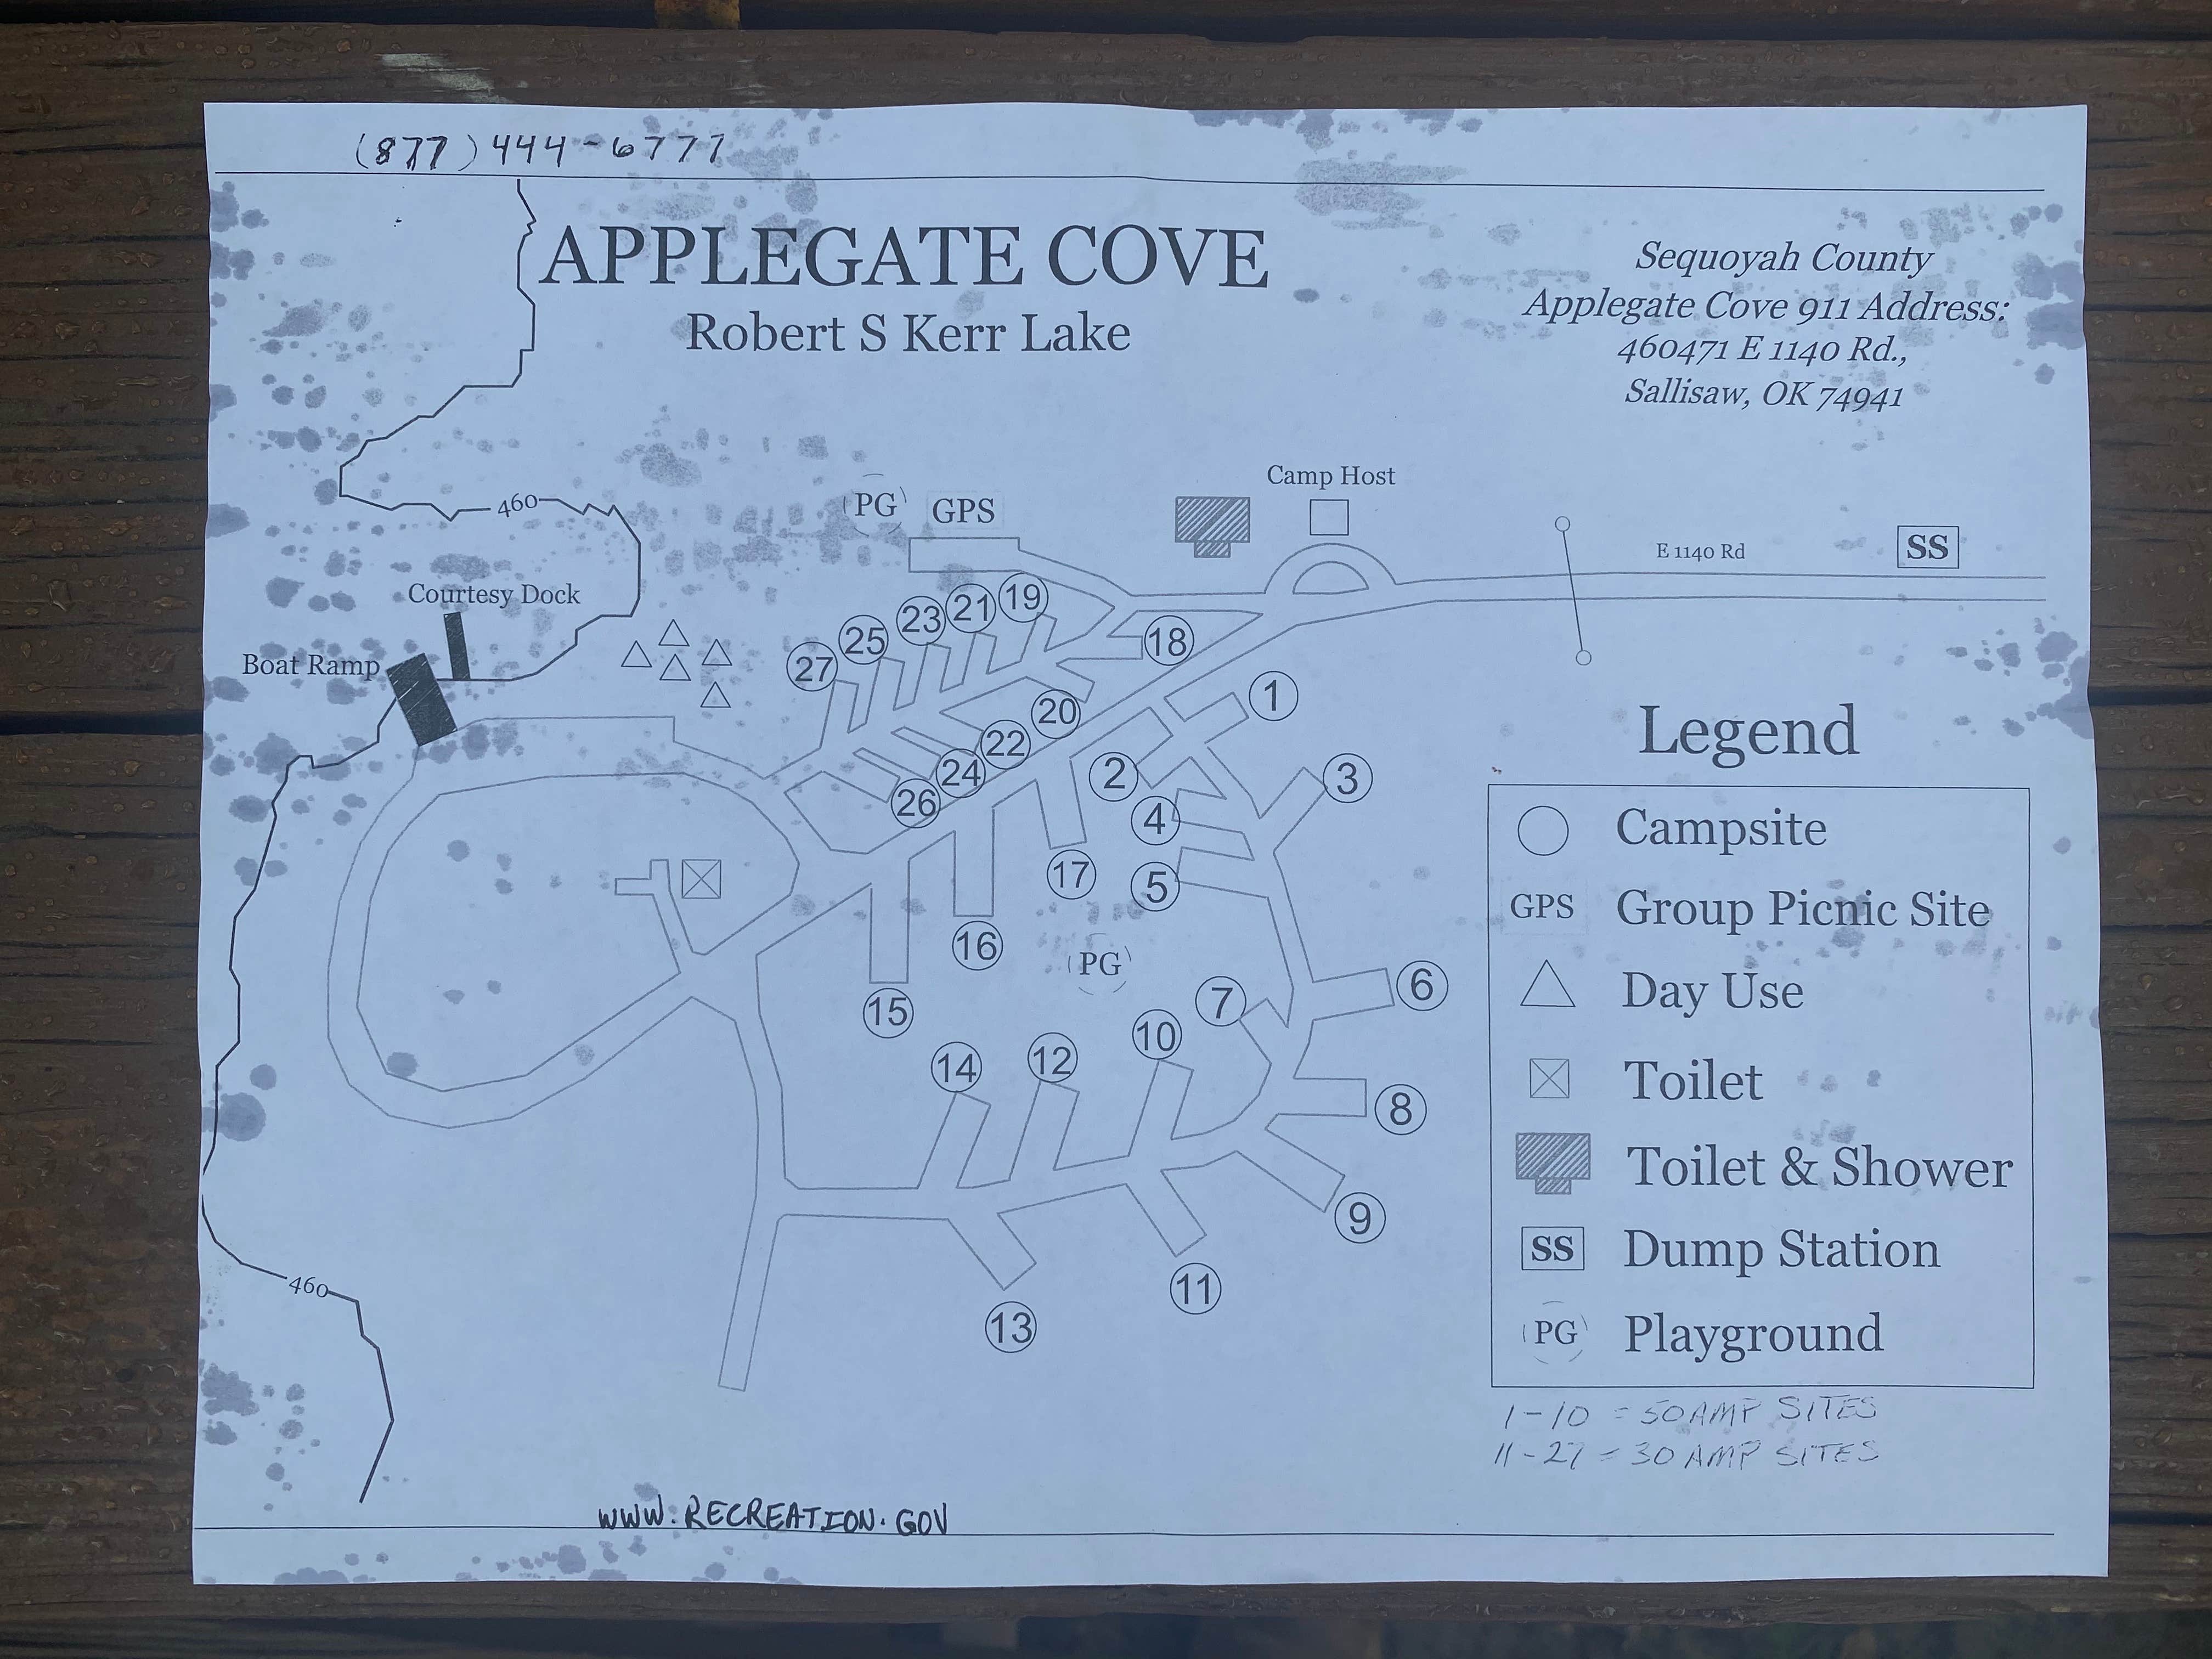 (877) 444-6777
APPLEGATE COVE
Robert S Kerr Lake
Sequoyah County
Applegate Cove 911 Address:
460471 E 1140 Rd.,
Sallisaw, OK 74941
Camp Host
PG
GPS
460
E 1140 Rd
SS
Courtesy Dock
Boat Ramp
19
21
23
25
27
18
20
22
24
26
1
2
3
4
5
17
16
15
PG
6
7
8
10
12
14
9
11
13
460
Legend
Campsite
GPS Group Picnic Site
Day Use
Toilet
Toilet & Shower
SS Dump Station
PG Playground
1-10 = 50 AMP SITES
11-27 = 30 AMP SITES
WWW.RECREATION.GOV